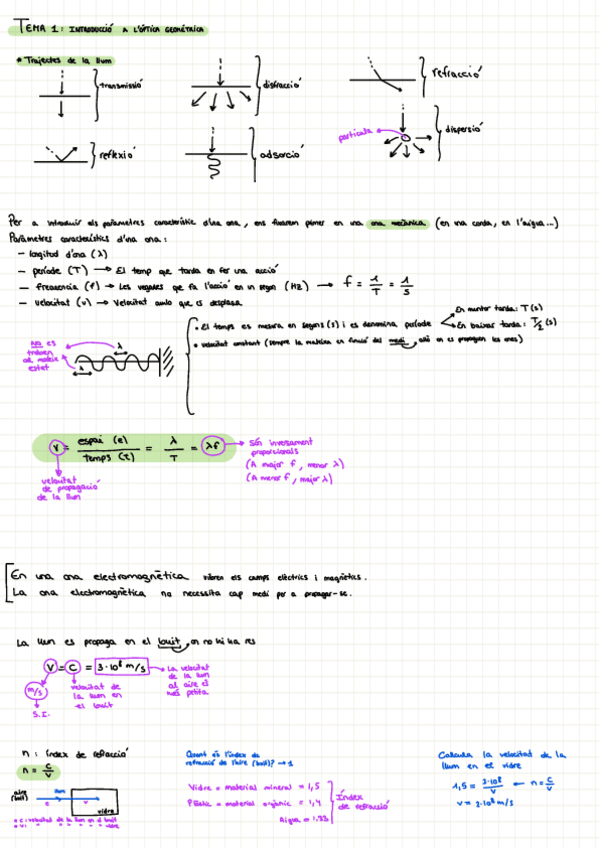 TEMA 1: INTRODUCCIÓ A L'ÒPTICA GEOMÈTRICA
* Trajectes de la llum
transmissió
difracció
refracció
reflexió
adsorció
partícula
dispersió
Per a introduir els paràmetres característic d'una ona, ens fixarem primer en una ona mecànica (en una corda, en l'aigua...)
Paràmetres característics d'una ona:
- longitud d'ona (λ)
- període (T) → El temp que tarda en fer una acció
- frequencia (f) → Les vegades que fa l'acció en un segon (Hz) → f = 1/T = 1/s
- velocitat (v) → Velocitat amb que es desplaça
• El temps es mesura en segons (s) i es denomina període
En muntar tarda: T (s)
En baixar tarda: T/2 (s)
• velocitat constant (sempre la mateixa en funció del medi, on es propaguen les ones)
NO es troben al mateix estat
λ
λ
v = espai (e) / temps (t) = λ / T = λf
Són inversament proporcionals
(A major f, menor λ)
(A menor f, major λ)
velocitat de propagació de la llum
En una ona electromagnètica vibren els camps elèctrics i magnètics.
La ona electromagnètica no necessita cap medi per a propagar-se.
La llum es propaga en el buit, on no hi ha res
v = c = 3·10⁸ m/s
La velocitat de la llum al aire és més petita
m/s
S.I.
velocitat de la llum en el buit
n: índex de refracció
n = c/v
aire (buit)
llum
c
v
vidre
Quant és l'índex de refracció de l'aire (buit)? → 1
Vidre = material mineral = 1,5
= material orgànic = 1,4
aigua = 1,33
Índex de refracció
Calcula la velocitat de la llum en el vidre
1,5 = 3·10⁸/v ← n = c/v
v = 2·10⁸ m/s